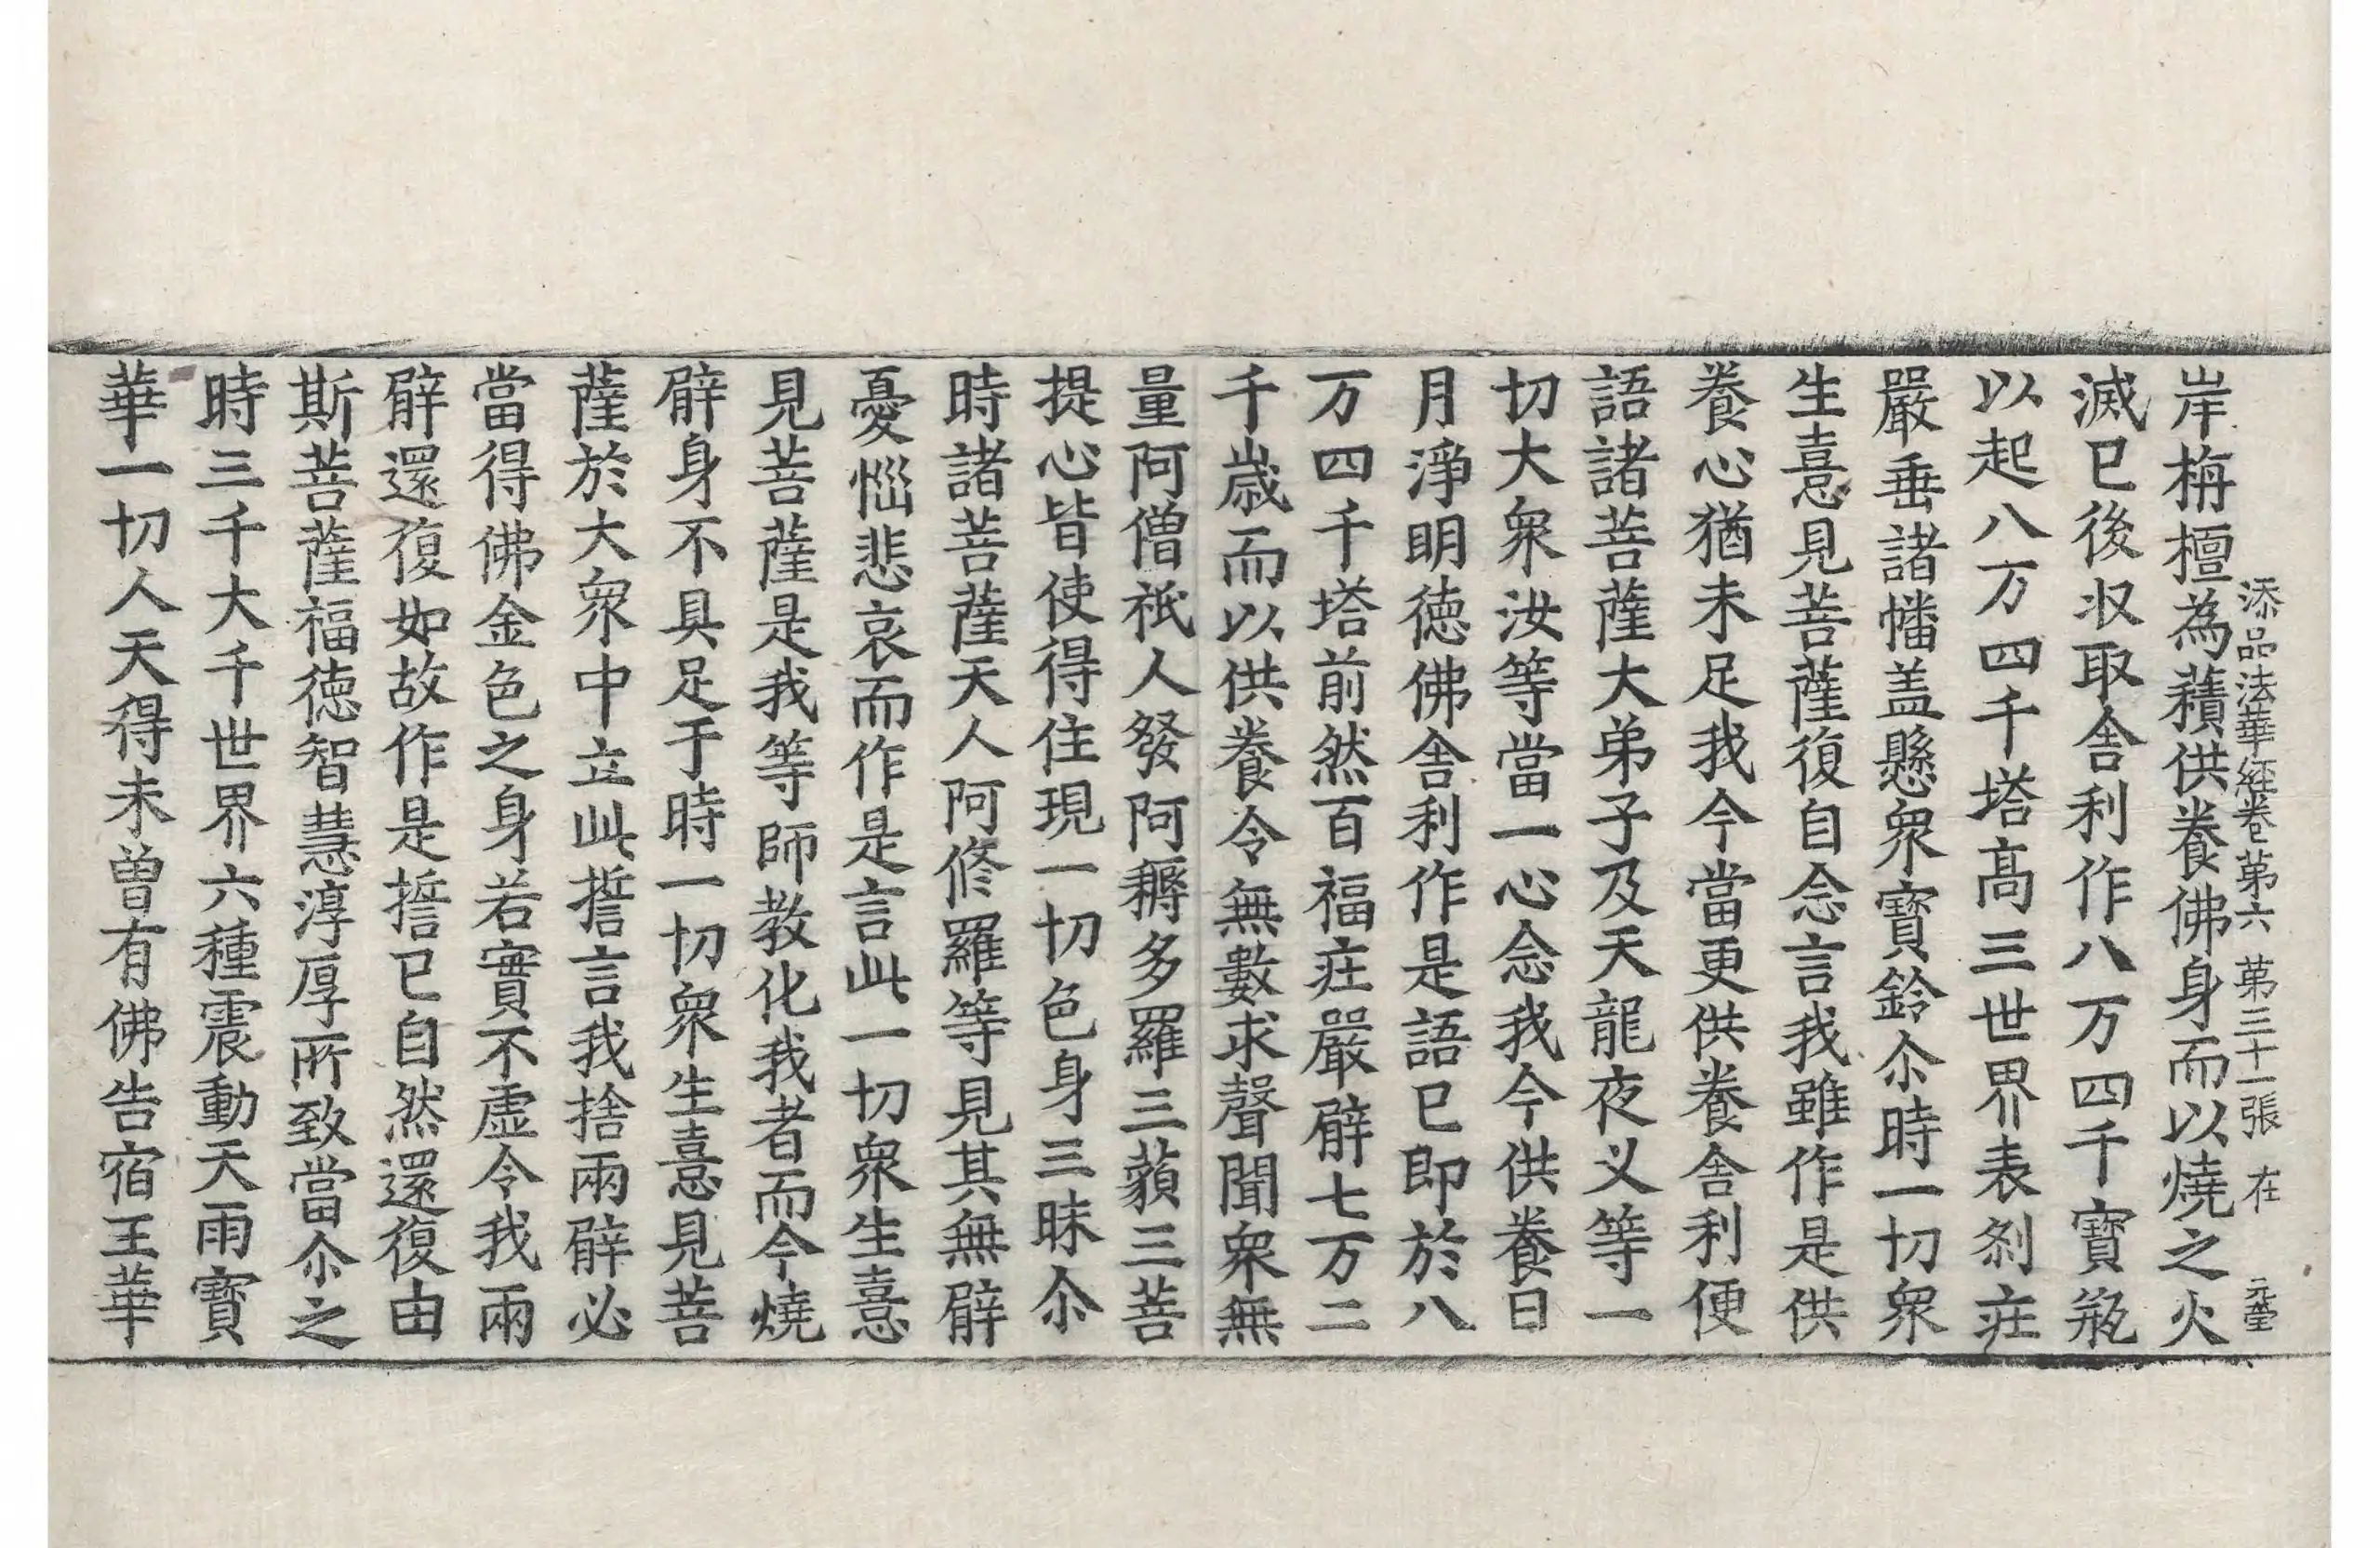 添品法華經卷第六 第三十一張 在 元瑩
岸栴檀為𧂐供養佛身而以燒之火
滅已後収取舍利作八万四千寶瓶
以起八万四千塔高三世界表刹莊
嚴垂諸幡盖懸衆寶鈴尒時一切衆
生憙見菩薩復自念言我雖作是供
養心猶未足我今當更供養舍利便
語諸菩薩大弟子及天龍夜义等一
切大衆汝等當一心念我今供養日
月淨明德佛舍利作是語已即於八
万四千塔前然百福莊嚴臂七万二
千歳而以供養令無數求聲聞衆無
量阿僧祇人發阿耨多羅三藐三菩
提心皆使得住現一切色身三昧尒
時諸菩薩天人阿修羅等見其無臂
憂惱悲哀而作是言此一切衆生憙
見菩薩是我等師教化我者而今燒
臂身不具足于時一切衆生憙見菩
薩於大衆中立此誓言我捨兩臂必
當得佛金色之身若實不虛令我兩
臂還復如故作是誓已自然還復由
斯菩薩福德智慧淳厚所致當尒之
時三千大千世界六種震動天雨寶
華一切人天得未曾有佛告宿王華